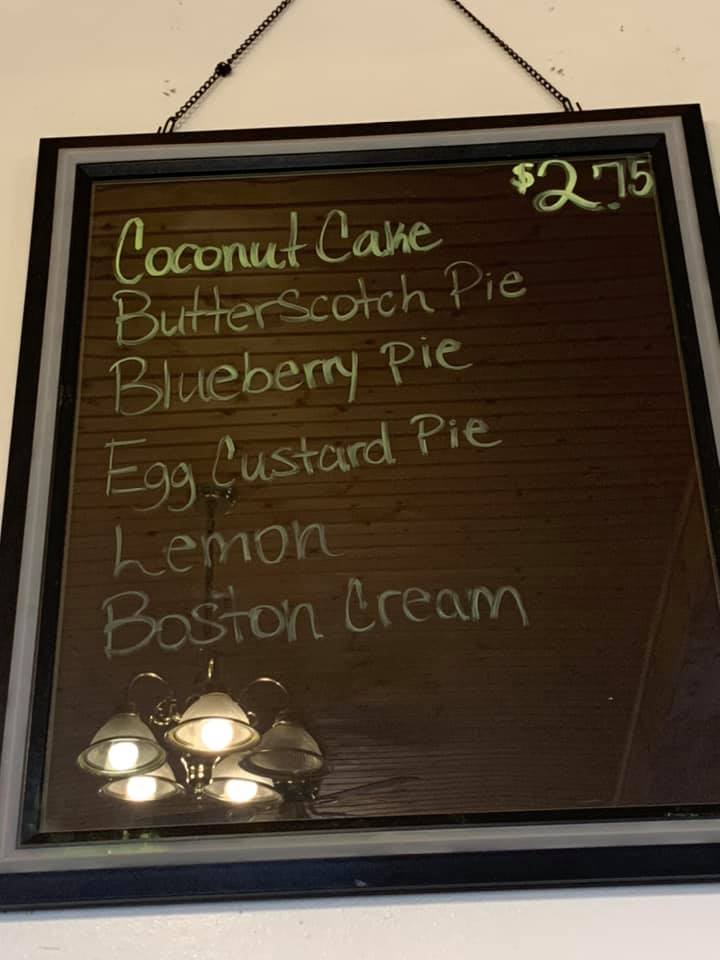 $2.75
Coconut Cake
Butterscotch Pie
Blueberry Pie
Egg Custard Pie
Lemon
Boston Cream